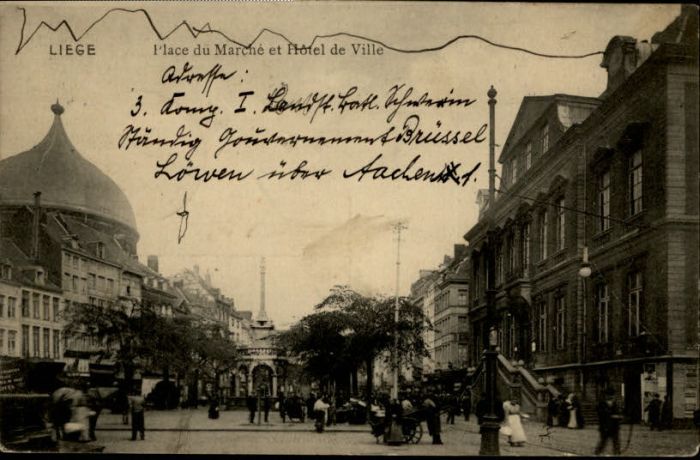 LIEGE Place du Marché et Hôtel de Ville
Adresse:
3. Komp. I. Landst. Batl. Schwerin
Ständig Gouvernement Brüssel
Löwen über Aachen